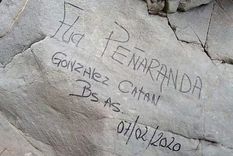 Flia PEÑARANDA
GONZALEZ CATAN
Bs As.
07/02/2020